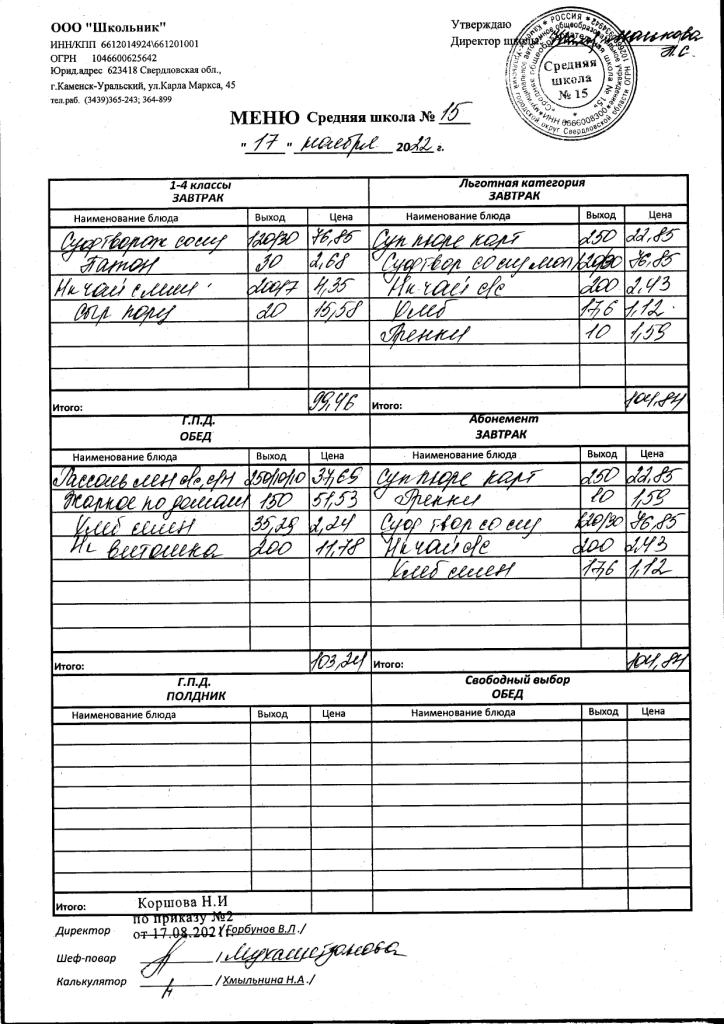 ООО "Школьник"
ИНН/КПП 6612014924\661201001
ОГРН 1046600625642
Юрид.адрес 623418 Свердловская обл.,
г.Каменск-Уральский, ул.Карла Маркса, 45
тел.раб. (3439)365-243; 364-899
Утверждаю
Директор школы
Средняя
школа
№ 15
МЕНЮ Средняя школа № 15
"17" ноября 2022 г.
1-4 классы
ЗАВТРАК
Наименование блюда Выход Цена
Суд творож со сгу 120/30 76,85
Батон 30 2,68
Нк чай с лим 200/7 4,35
Сыр порц 20 15,58
Итого: 99,46
Льготная категория
ЗАВТРАК
Наименование блюда Выход Цена
Суп пюре карт 250 22,85
Суд твор со сгу мол 120/30 76,85
Нк чай с/с 200 2,43
Хлеб 17,6 1,12
Гренки 10 1,59
Итого: 104,84
Г.П.Д.
ОБЕД
Наименование блюда Выход Цена
Рассоль лен с/с, с/м 250/10/10 37,69
Жаркое по домаш 150 51,53
Хлеб пшен 35,29 2,24
Нк витошка 200 11,78
Итого: 103,24
Абонемент
ЗАВТРАК
Наименование блюда Выход Цена
Суп пюре карт 250 22,85
Гренки 10 1,59
Суд твор со сгу 120/30 76,85
Нк чай с/с 200 2,43
Хлеб пшен 17,6 1,12
Итого: 104,84
Г.П.Д.
ПОЛДНИК
Наименование блюда Выход Цена
Итого:
Свободный выбор
ОБЕД
Наименование блюда Выход Цена
Коршова Н.И
по приказу №2
от 17.08.2021г.
Директор /Горбунов В.Л./
Шеф-повар / Мухаметдянова
Калькулятор / Хмыльнина Н.А./